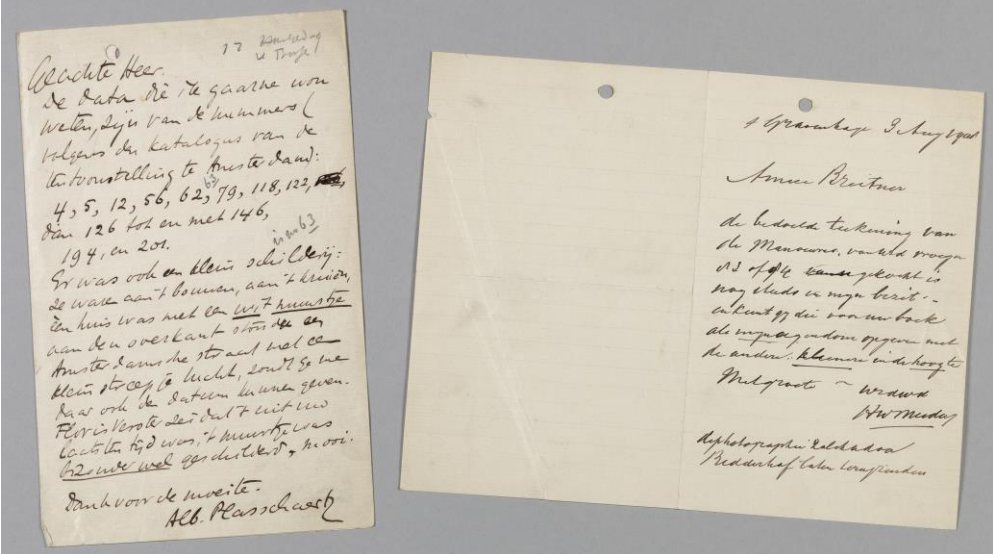 17
Geachte Heer.
De data die ik gaarne wou
weten, zijn van de nummers (
volgens den katalogus van de
tentoonstelling te Amsterdam:
63
4, 5, 12, 56, 62, 79, 118, 122,
dan 126 tot en met 146,
194, en 201.
in no 63
Er was ook een klein schilderij:
ze waren aan 't bouwen, aan 't kruien,
één huis was met een wit muurtje
aan den overkant stond een
Amsterdamsche straat met een
klein streepje lucht, zoudt ge me
daar ook de datum kunnen geven.
Floris Verster zei dat 't uit uw
laatsten tijd was, 't muurtje was
bizonder wel geschilderd, mooi.
Dank voor de moeite.
Alb. Plasschaert
s Gravenhage 3 Aug
Amice Breitner
de bedoelde teekening van
de Manoeuvres, van U vroeger
83 of 84 gekocht is
nog steeds in mijn bezit
en kunt gij die voor uw boek
als mijn eigendom opgeven met
de andere. kleinere in de hoogte
Met groete
HW Mesdag
de photographie zal
Ridderhof laten